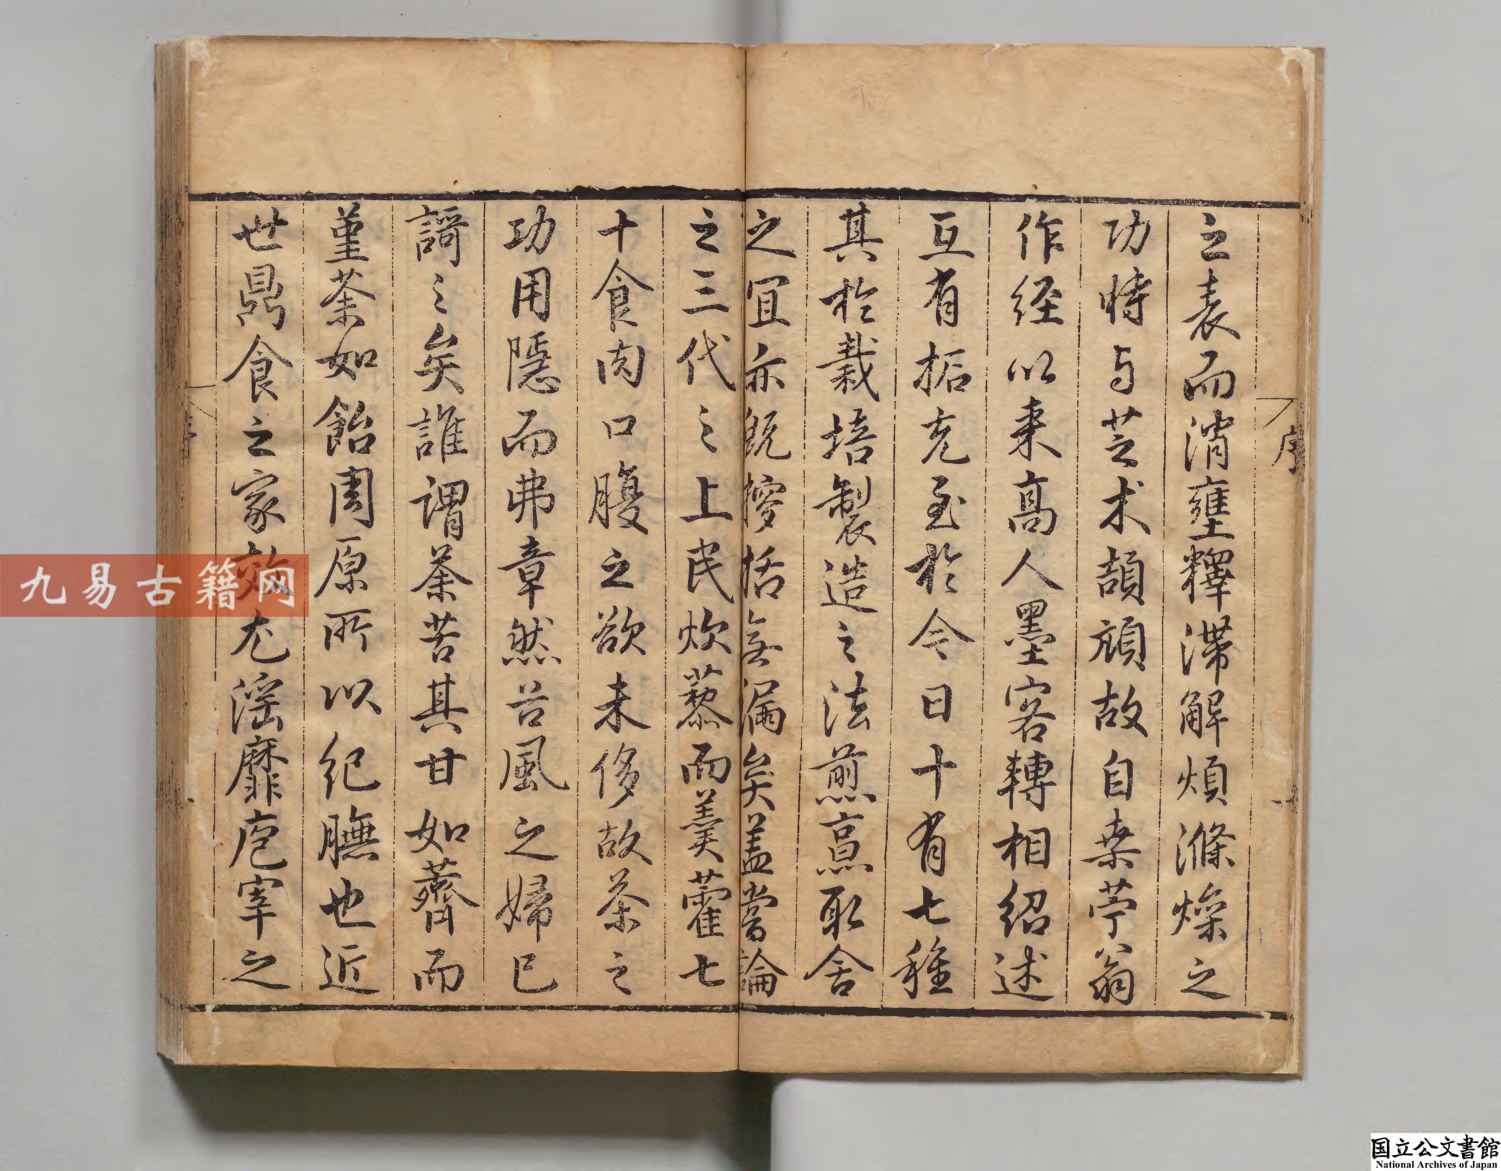 之表而消壅釋滯解煩滌燥之
功時与芝术頡頏故自桒苧翁
作經以來高人墨客轉相紹述
互有拓充至於今日十有七種
其於栽培製造之法煎烹取舍
之宜亦既摉括無漏矣盖嘗論
之三代之上民炊藜而羹藿七
十食肉口腹之欲未侈故茶之
功用隱而弗章然谷風之婦已
謌之矣誰謂荼苦其甘如薺而
堇荼如飴周原所以紀膴也近
世鼎食之家效尤淫靡庖宰之
序
九易古籍网
国立公文書館
National Archives of Japan